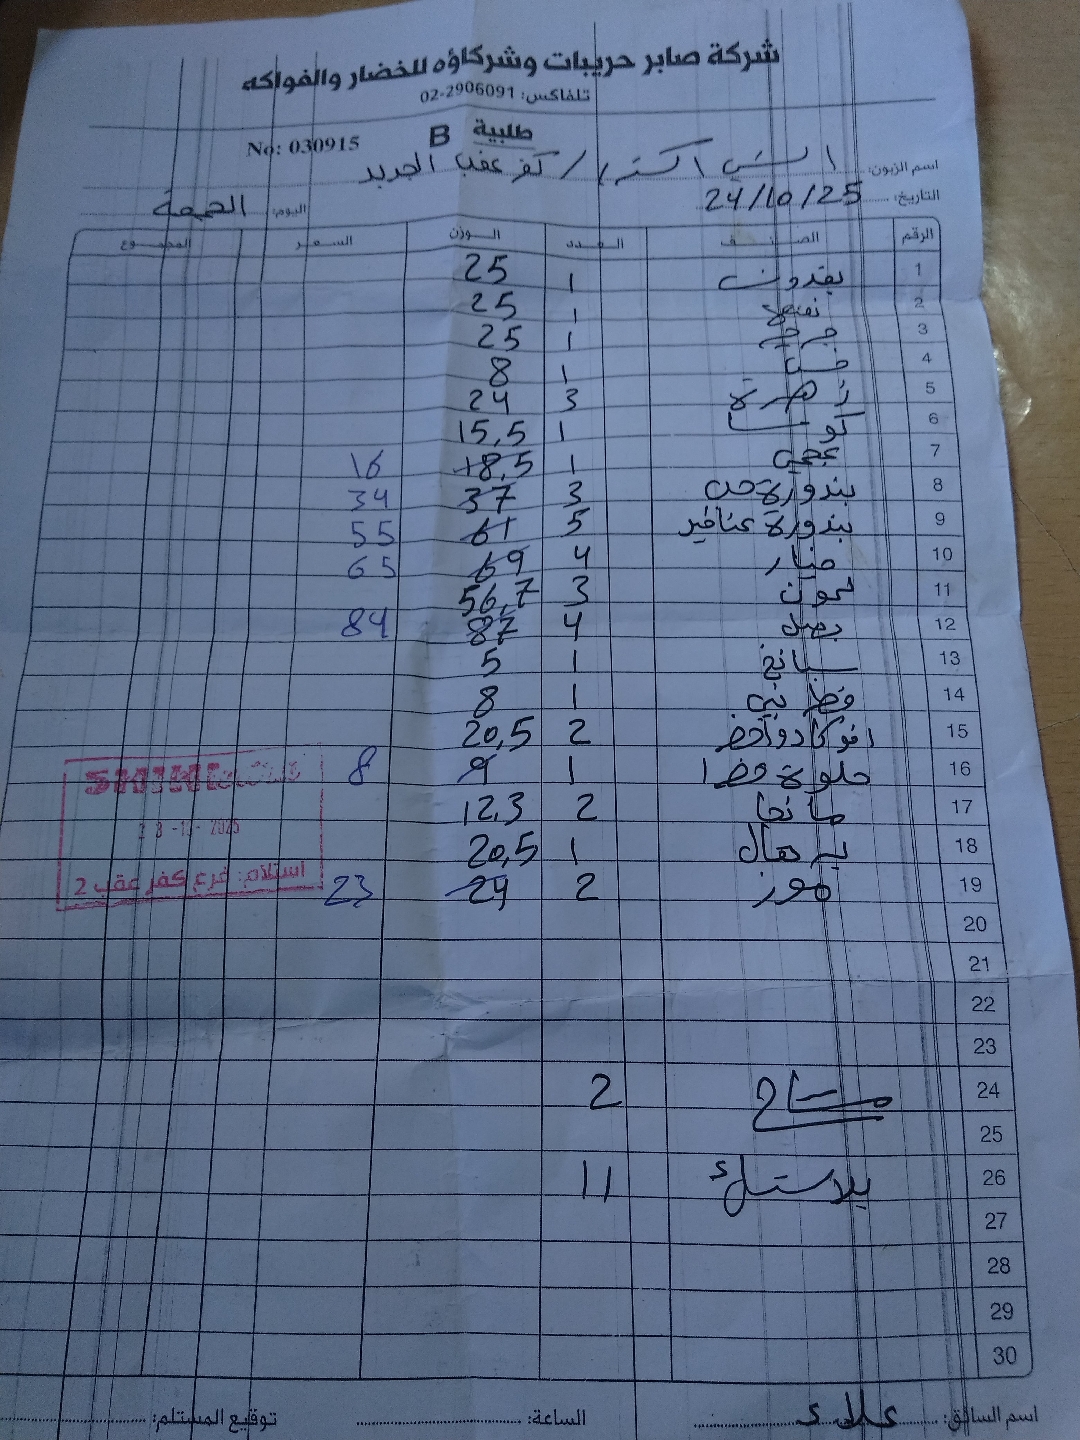 شركة صابر حريبات وشركاؤه للخضار والفواكه
تلفاكس: 02-2906091
طلبية B
No: 030915
اسم الزبون: السني اكسترا / كفر عقب الجديد
التاريخ: 24/10/25 اليوم: الجمعة
الرقم الصنف العدد الوزن السعر المجموع
1 بقدونس 1 25
2 نعنع 1 25
3 جرجير 1 25
4 خس 1 8
5 زهرة 3 24
6 كوسا 1 15,5
7 عجمي 1 18,5 16
8 بندورة حب 3 37 34
9 بندورة عناقيد 5 61 55
10 خيار 4 69 65
11 لمون 3 56,7
12 بصل 4 87 84
13 سبانخ 1 5
14 1 8
15 افوكادو اخضر 2 20,5
16 حلوة خضرا 1 9 8
17 مانجا 2 12,3
18 1 20,5
19 موز 2 24 23
20
21
22
23
24 مشتاح 2
25
26 بلاستيك 11
27
28
29
30
2025
استلام: فرع كفر عقب 2
اسم السائق: علاء الساعة: توقيع المستلم: